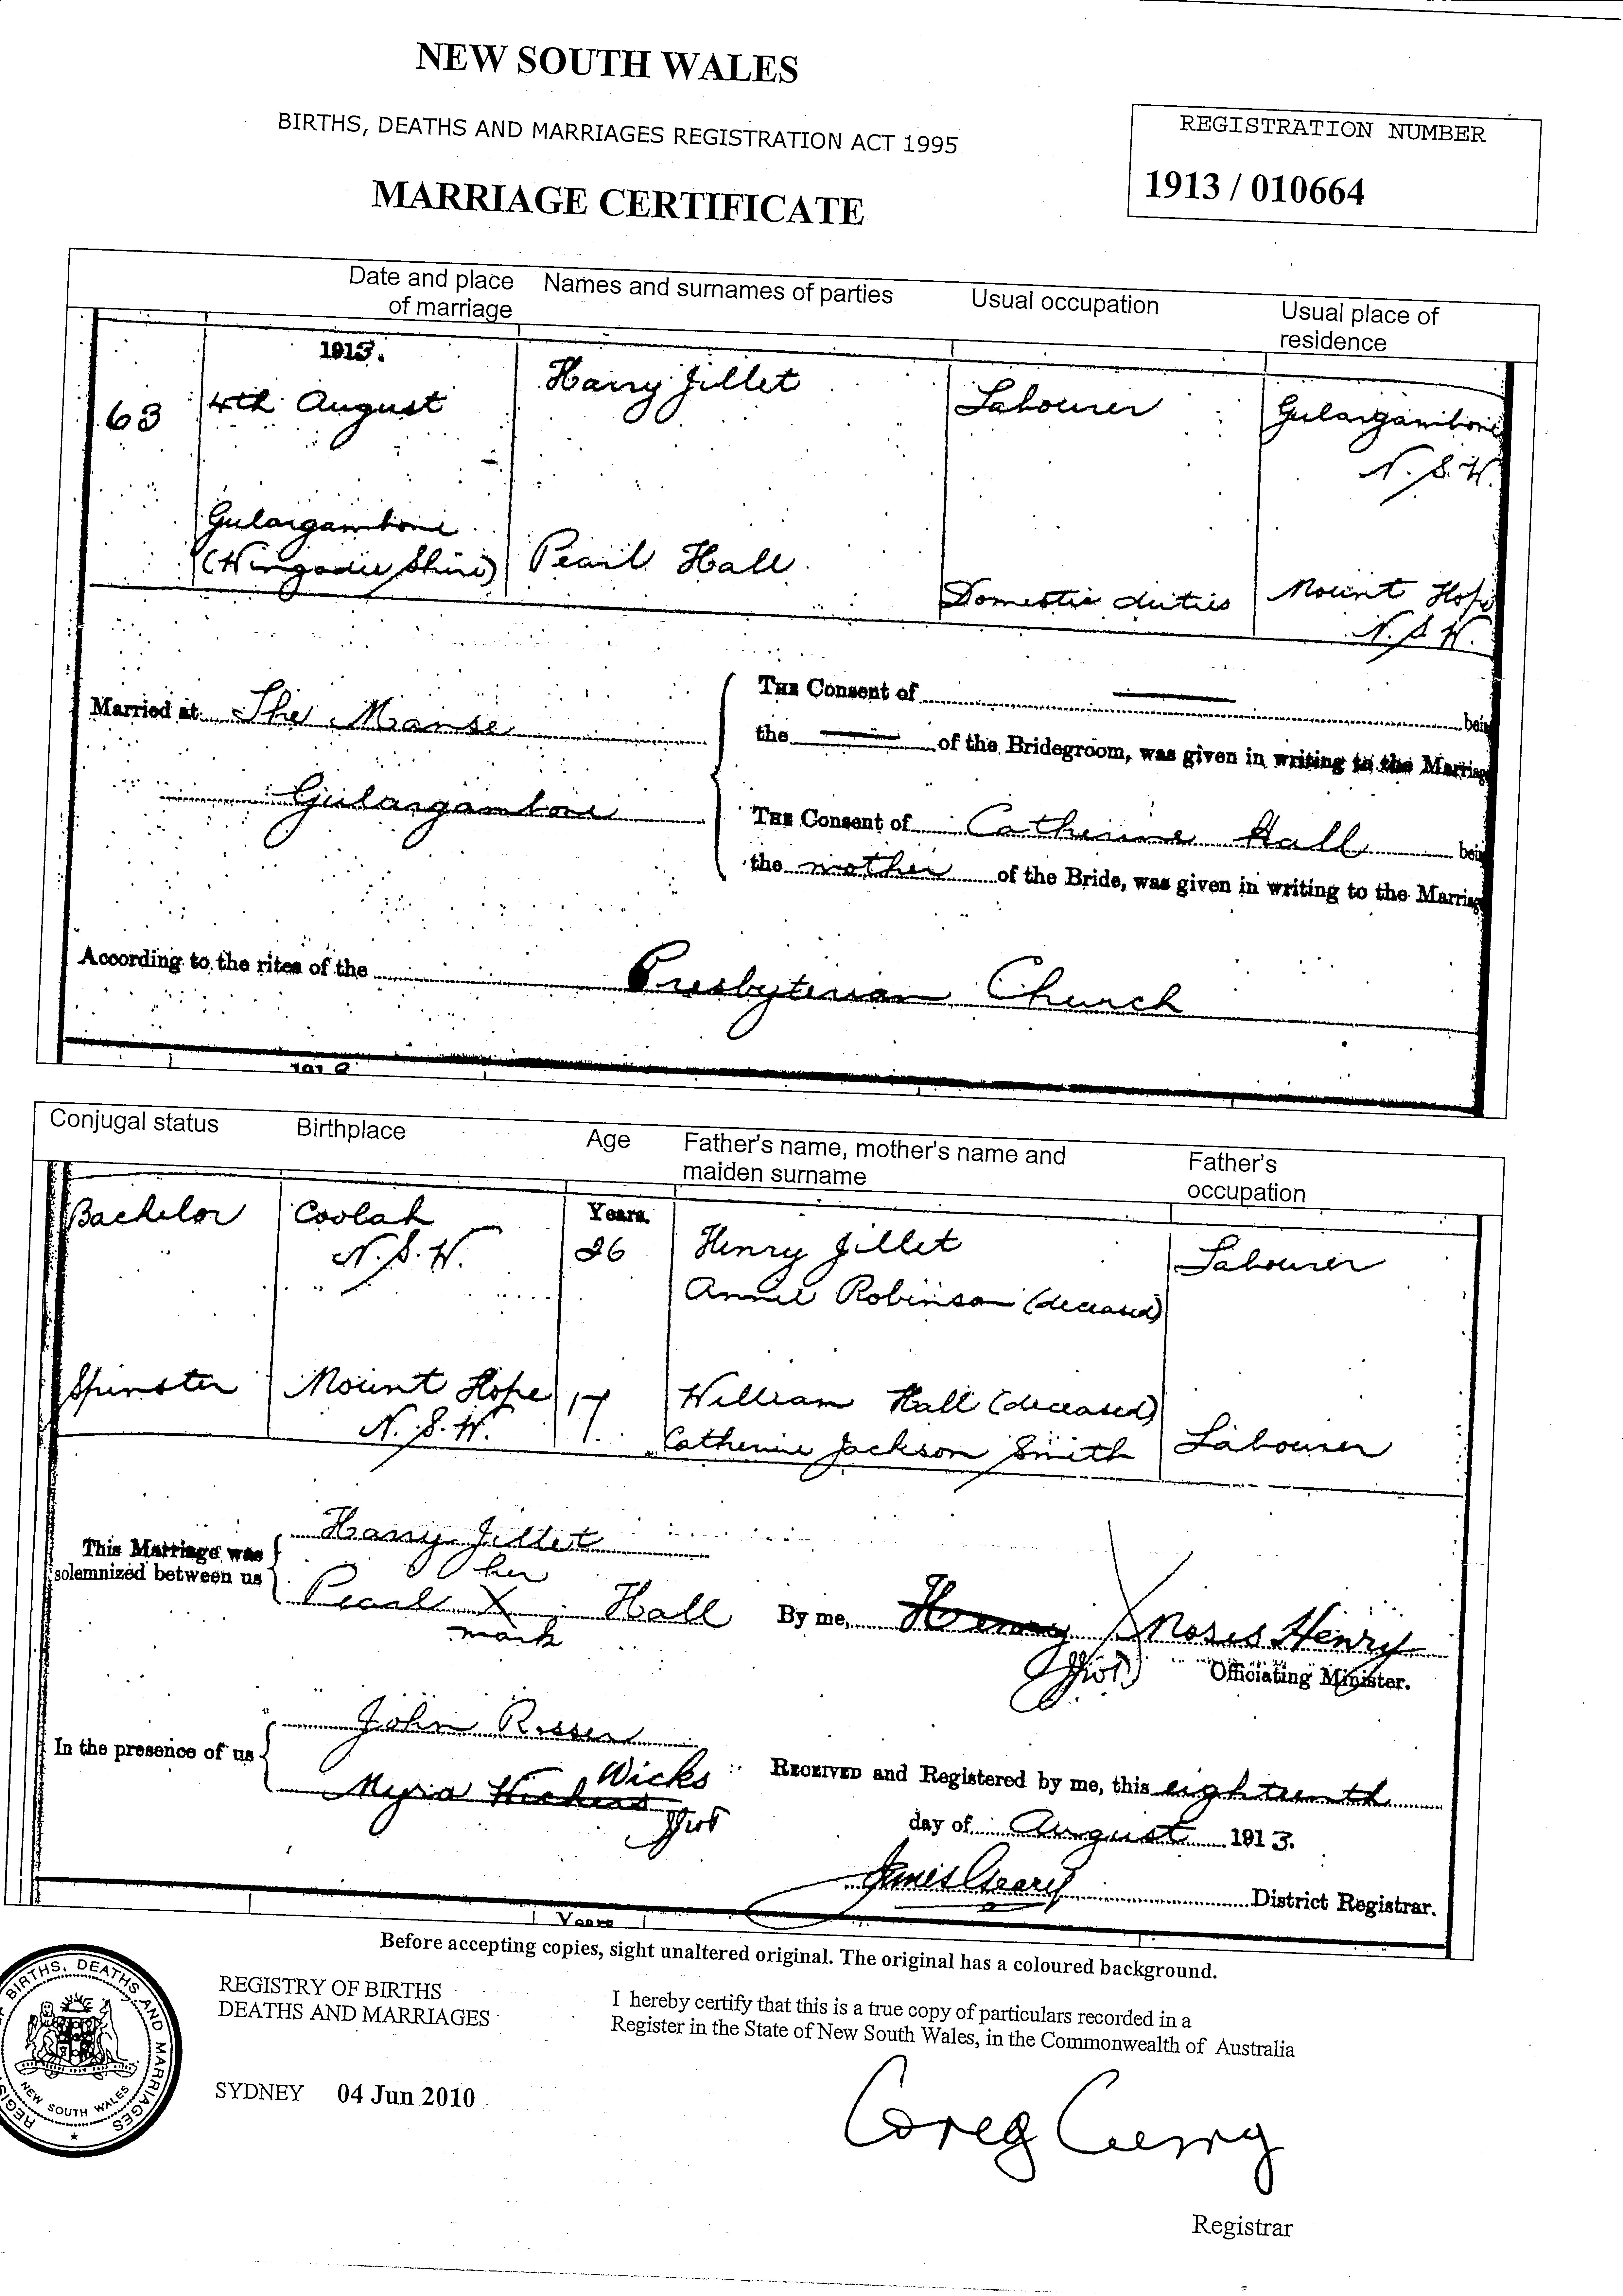 NEW SOUTH WALES
BIRTHS, DEATHS AND MARRIAGES REGISTRATION ACT 1995
MARRIAGE CERTIFICATE
REGISTRATION NUMBER
1913 / 010664
Date and place of marriage
Names and surnames of parties
Usual occupation
Usual place of residence
1913.
63
4th August
Harry Jillet
Labourer
Gulargambone
N.S.W.
Gulargambone
(Wingadee Shire)
Pearl Hall.
Domestic duties
Mount Hope
N.S.W.
Married at The Manse
Gulargambone
THE Consent of — bein
the — of the Bridegroom, was given in writing to the Marriag
THE Consent of Catherine Hall bein
the mother of the Bride, was given in writing to the Marriag
According to the rites of the Presbyterian Church
Conjugal status
Birthplace
Age
Father's name, mother's name and maiden surname
Father's occupation
Bachelor
Coolah
N.S.W.
Years.
26
Henry Jillet
Annie Robinson (deceased)
Labourer
Spinster
Mount Hope
N.S.W.
17
William Hall (deceased)
Catherine Jackson Smith
Labourer
This Marriage was solemnized between us
Harry Jillet
her
Pearl X Hall
mark
By me, Henry Moses Henry
Officiating Minister.
In the presence of us
John Rosser
Myra Wickens Wicks
RECEIVED and Registered by me, this eighteenth
day of August 1913.
James Geary District Registrar.
Years
Before accepting copies, sight unaltered original. The original has a coloured background.
BIRTHS, DEATHS AND MARRIAGES
NEW SOUTH WALES
REGISTRY OF BIRTHS
DEATHS AND MARRIAGES
SYDNEY 04 Jun 2010
I hereby certify that this is a true copy of particulars recorded in a
Register in the State of New South Wales, in the Commonwealth of Australia
Greg Curry
Registrar